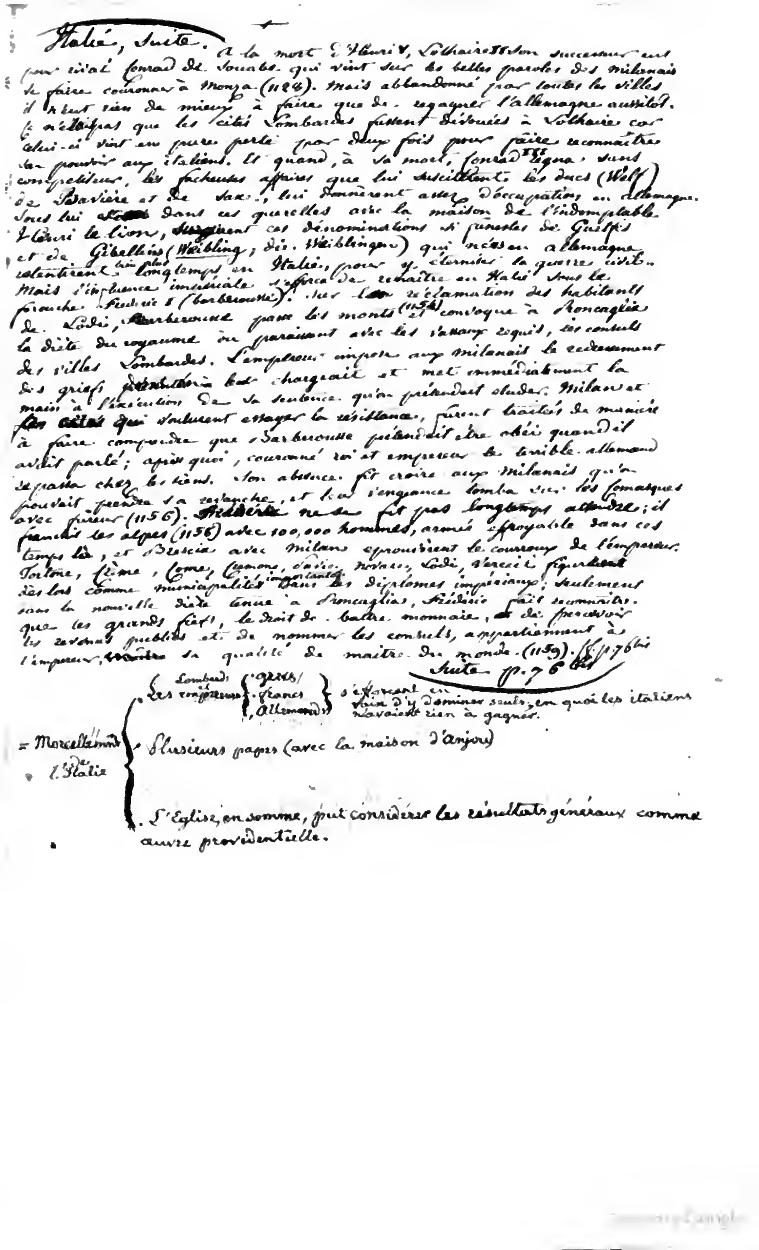 Italie, Suite. A la mort d'Henri V, Lothaire II son successeur eut
pour rival Conrad de Souabe qui vint sur les belles paroles des Milanais
se faire couronner à Monza (1128). Mais abandonné par toutes les villes
il n'eut rien de mieux à faire que de regagner l'allemagne aussitot.
Ce n'est pas que les cités Lombardes fussent dévouées à Lothaire car
celui-ci vint en pure perte par deux fois pour faire reconnaître
son pouvoir aux italiens. Et quand, à sa mort, Conrad III régna sans
compétiteur, les facheuses affaires que lui suscitèrent les ducs (Welf)
de Bavière et de Saxe, lui donnèrent assez d'occupations en allemagne.
Sous lui dans ces querelles avec la maison de l'indomptable
Henri le lion, ces dénominations si funestes de Guelfes
et de Gibellins (Weibling, de Weiblingen) qui nées en allemagne
retentirent bien plus longtemps en Italie, pour y éterniser la guerre civile.
Mais l'influence impériale s'efforça de renaître en Italie sous le
farouche Frédéric I (barberousse). Sur la réclamation des habitants
de Lodi, Barberousse passe les monts (1154) et convoque à Roncaglia
la diète du royaume où paraissent avec les vassaux requis, les consuls
des villes Lombardes. L'empereur impose aux Milanais le redressement
des griefs chargeait et met immédiatement la
main à l'exécution de sa sentence qu'on prétendait éluder. Milan et
les cités qui voulurent essayer la résistance, furent traités de manière
à faire comprendre que Barberousse prétendait être obéi quand il
avait parlé; après quoi, couronné roi et empereur le terrible allemand
repassa chez les siens. Son absence fit croire aux Milanais qu'on
pouvait prendre sa revanche, et leur vengeance tomba sur les Comasques
avec fureur (1156). Frédéric ne se fit pas longtemps attendre; il
franchit les alpes (1156) avec 100,000 hommes, armée effroyable dans ces
temps là, et Brescia avec Milan éprouvèrent le courroux de l'empereur.
Tortone, Crème, Come, Crémone, Pavie, Novare, Lodi, Verceil figurèrent
dès lors comme municipalités importantes dans les diplomes impériaux; seulement
dans la nouvelle diète tenue à Roncaglia, Frédéric fait reconnaître
que les grands fiefs, le droit de battre monnaie, et de percevoir
les revenus publics et de nommer les consuls, appartiennent à
l'empereur, sa qualité de maître du monde. (1159). p. 76 bis
Suite p. 76 bis
Lombards Grecs
Les empereurs francs s'efforcent en
Allemands vain d'y dominer seuls, en quoi les italiens
n'avaient rien à gagner.
= Morcellement
de
l'Italie
Plusieurs papes (avec la maison d'Anjou)
L'Eglise, en somme, peut considérer les résultats généraux comme
œuvre providentielle.